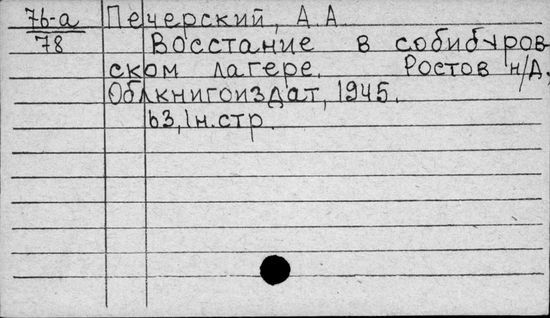 76-а Печерский, А. А
78 Восстание в собибуров
ском лагере. Ростов н/Д.
Облкнигоиздат, 1945.
63, 1н.стр.